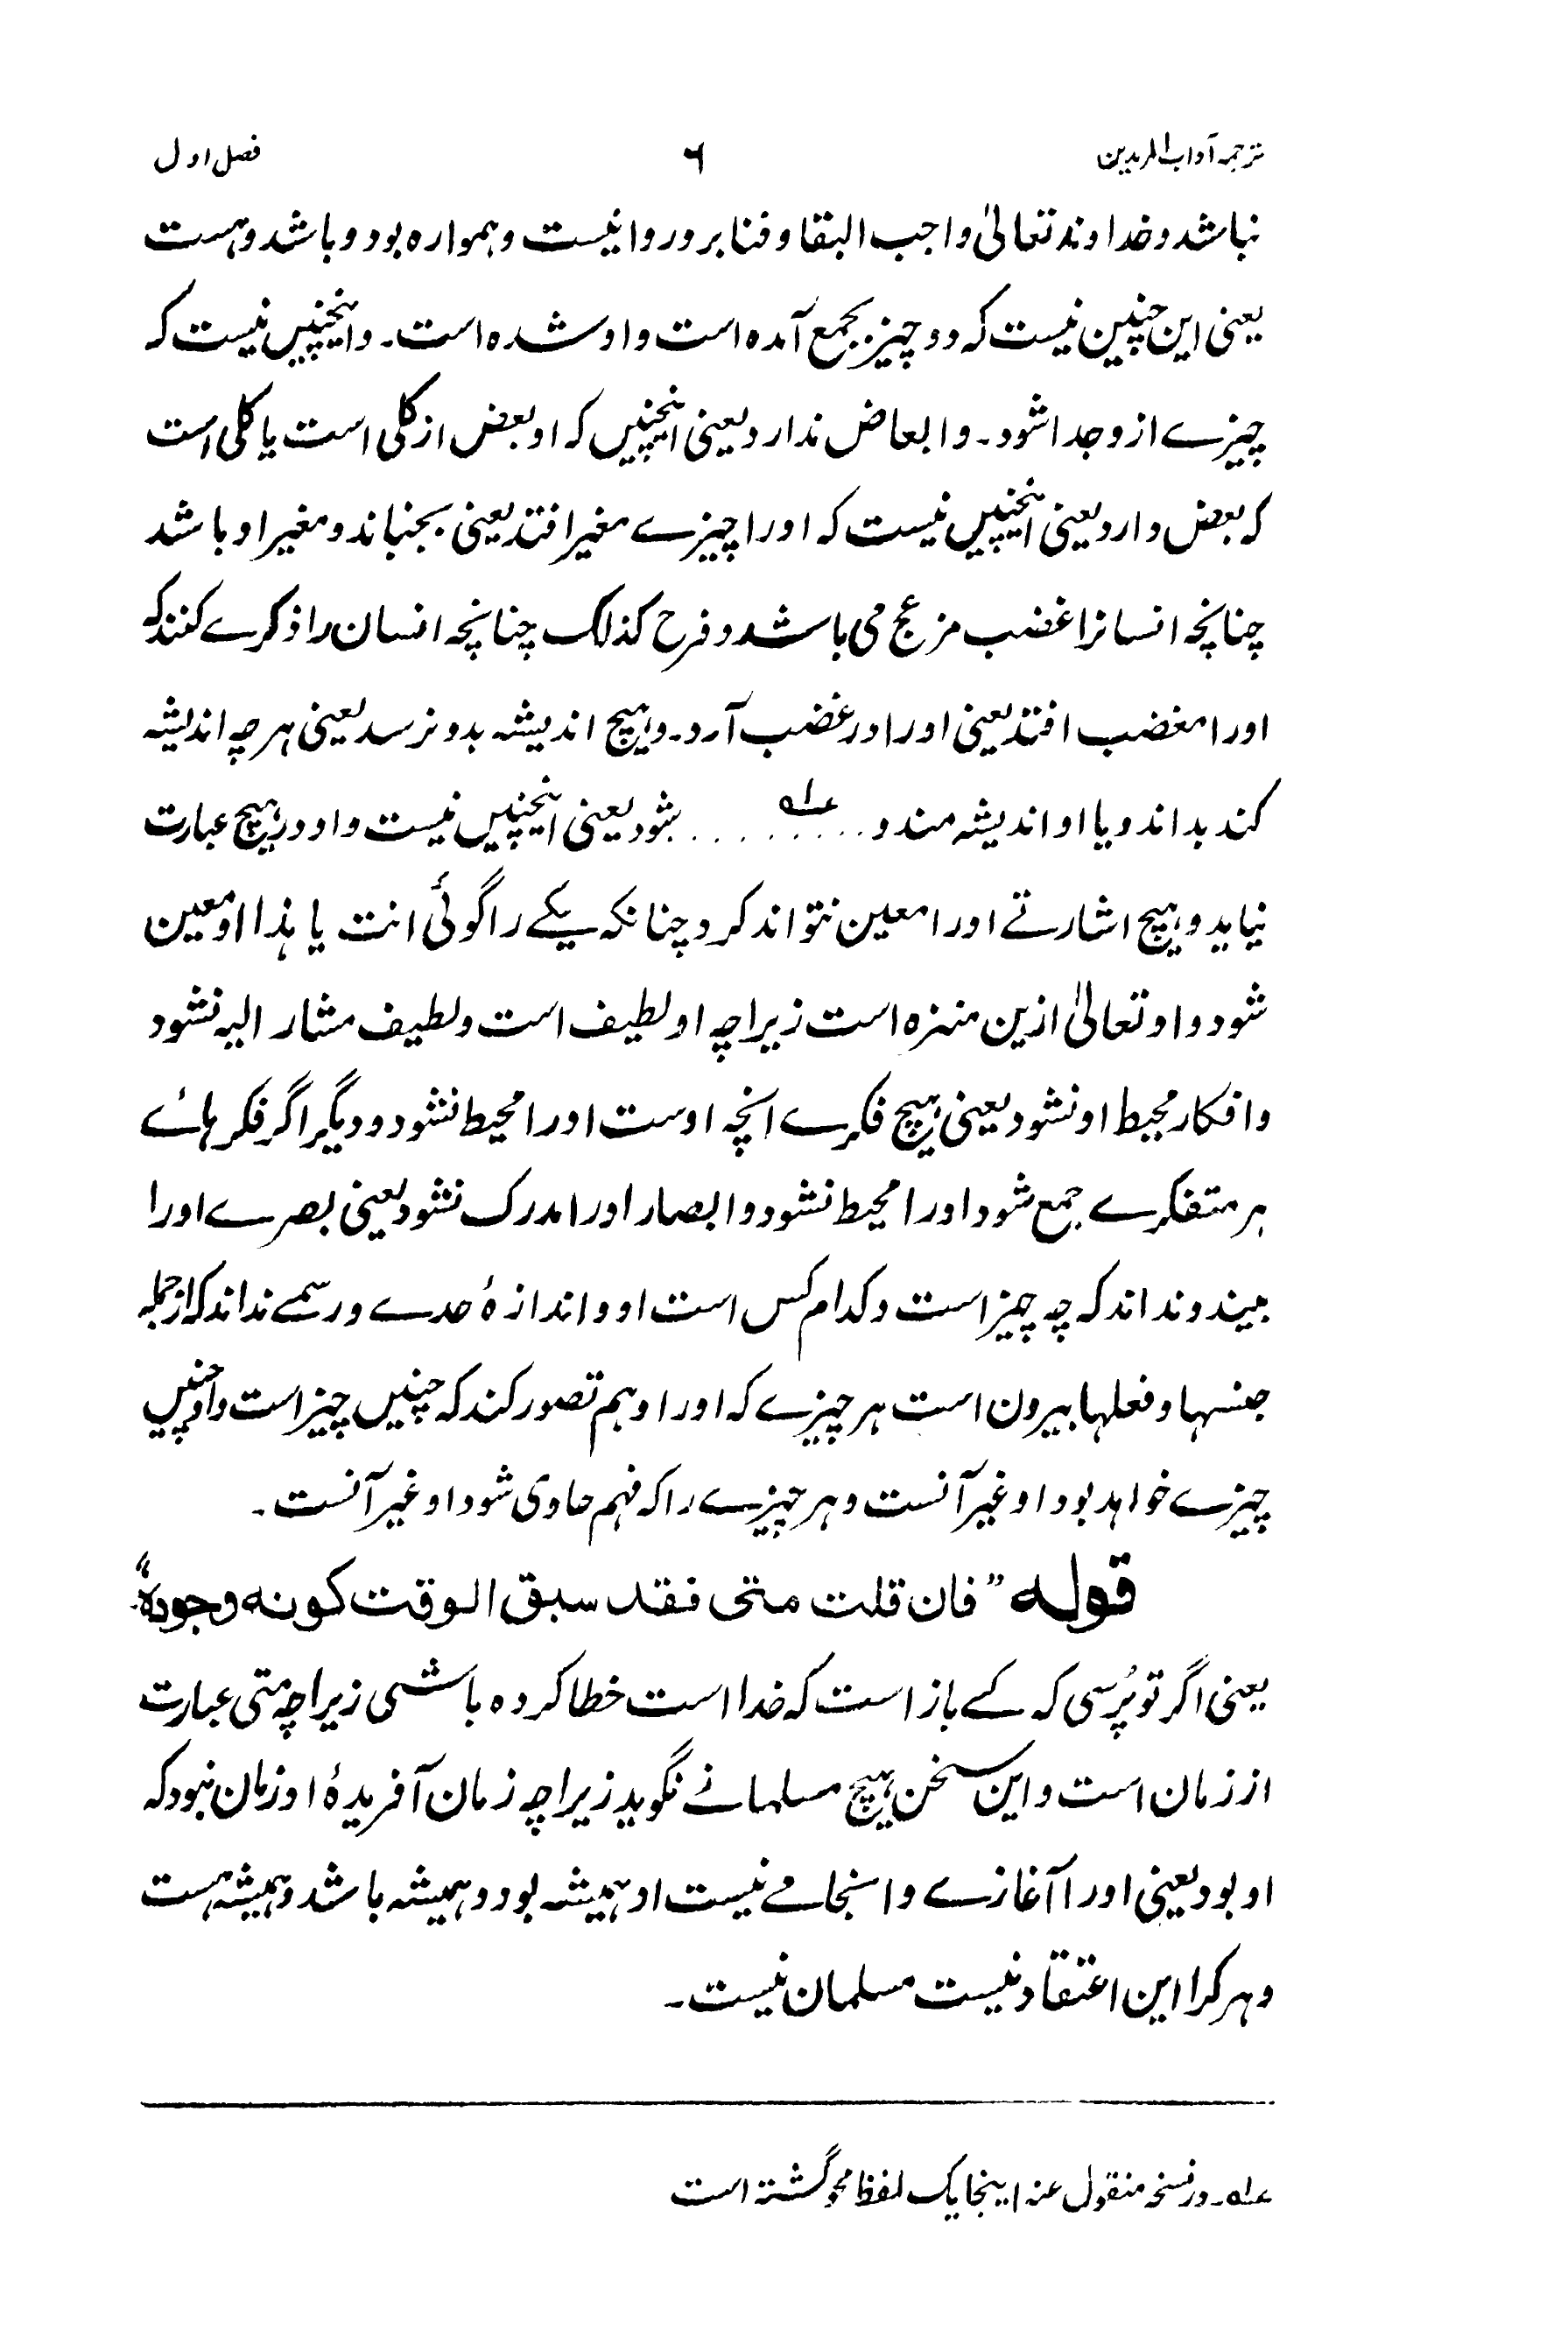 ترجمہ آداب المریدین ۶ فصل اول
نباشد و خداوند تعالیٰ واجب البقا و فنا برو روا نیست و ہموارہ بود و باشد و ہست
یعنی این چنین نیست کہ دو چیز بجمع آمدہ است و او شدہ است۔ و اینچنیں نیست کہ
چیزے ازو جدا شود۔ و ابعاض ندارد یعنی اینچنیں کہ او بعض از کلی است یا کلی است
کہ بعض دارد یعنی اینچنیں نیست کہ اورا چیزے مغیر افتد یعنی بجنباند و مغیر او باشد
چنانچہ انسانرا غضب مزعج می باشد و فرح کذلک چنانچہ انسان را ذکرے کنند کہ
اورا مغضب افتد یعنی اورا در غضب آرد۔ و ہیچ اندیشہ بدو نرسد یعنی ہر چہ اندیشہ
کند بداند و یا او اندیشہ مند و ......... عــلہ شود یعنی اینچنیں نیست و او در ہیچ عبارت
نیاید و ہیچ اشارتے اورا معین نتواند کرد چنانکہ یکے را گوئی انت یا ہذا او معین
شود و او تعالیٰ ازین منزہ است زیراچہ او لطیف است و لطیف مشار الیہ نشود
و افکار محیط او نشود یعنی ہیچ فکرے آنچہ اوست اورا محیط نشود و دیگر اگر فکر ہائے
ہر متفکرے جمع شود اورا محیط نشود و ابصار اورا مدرک نشود یعنی بصرے اورا
بیند و نداند کہ چہ چیز است و کدام کس است او و اندازۂ حدے و رسمے نداند کہ از جملہ
جنسہا و فعلہا بیرون است ہر چیزے کہ اورا وہم تصور کند کہ چنیں چیز است و او چنیں
چیزے خواہد بود او غیر آنست و ہر چیزے را کہ فہم حاوی شود او غیر آنست۔
قولہ ”فان قلت متی فقد سبق الوقت کونہ وجودہٗ“
یعنی اگر تو پُرسی کہ کے باز است کہ خدا است خطا کردہ باشی زیراچہ متی عبارت
از زمان است و این سخن ہیچ مسلمانے نگوید زیراچہ زمان آفریدۂ او زمان نبود کہ
او بود یعنی اورا آغازے و انجامے نیست او ہمیشہ بود و ہمیشہ باشد و ہمیشہ ہست
و ہر کرا این اعتقاد نیست مسلمان نیست۔
عــلہ۔ در نسخہ منقول عنہ اینجا یک لفظ محو گشتہ است